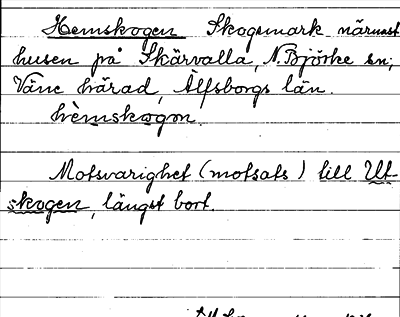 Hemskogen Skogsmark närmast
husen på Skärvalla, N. Björke sn,
Väne härad, Älfsborgs län.
hèmskogon.
Motsvarighet (motsats) till Ut-
skogen, längst bort.